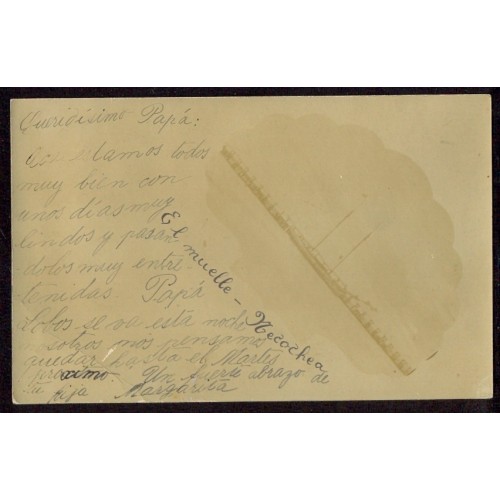 Queridísimo Papá:
estamos todos
muy bien con
unos dias muy
lindos y pasan
dolos muy entre-
tenidas. Papá
Lobos se va esta noche
nosotros nos pensamos
quedar hasta el Martes
próximo. Un fuerte abrazo de
tu hija Margarita
El muelle - Necochea